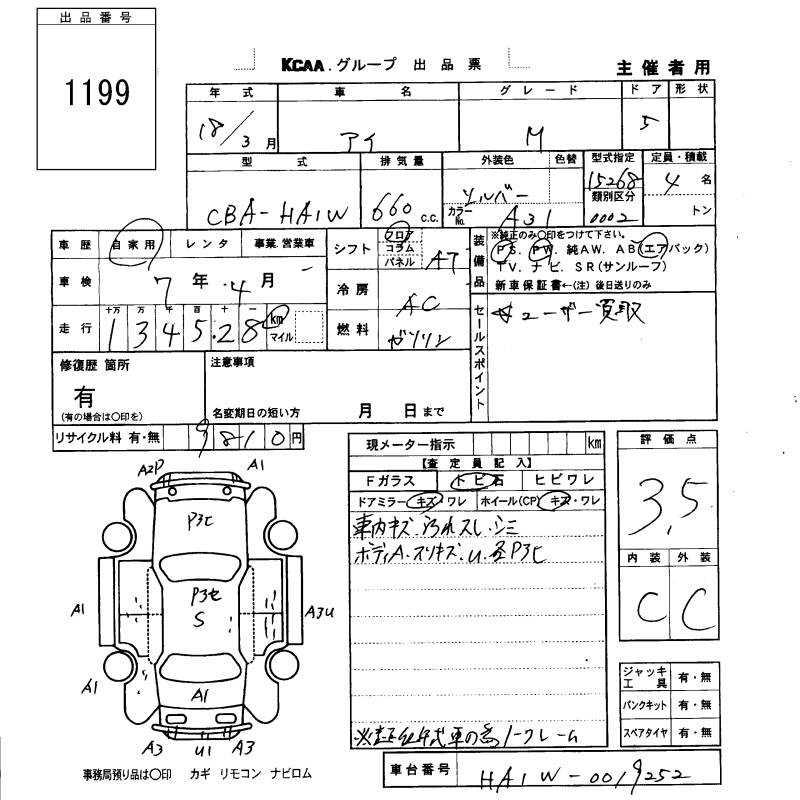 出品番号
1199
KCAA.グループ 出品票
主催者用
年式 車名 グレード ドア 形状
18/3月 アイ M 5
型式 排気量 外装色 色替 型式指定 定員・積載
CBA-HA1W 660 c.c. シルバー 15268 4名
カラーNo. A31 類別区分 0002 トン
車歴 自家用 レンタ 事業.営業車
シフト フロア コラム パネル AT
装備品
※純正のみ〇印をつけて下さい。
P S. P W. 純AW. A B (エアバック)
T V. ナビ. S R (サンルーフ)
新車保証書←(注) 後日送りのみ
車検 7年.4月
冷房 AC
走行 十万 万 千 百 十 一
134528 km マイル
燃料 ガソリン
セールスポイント
☆ユーザー買取
修復歴 箇所
有
(有の場合は〇印を)
注意事項
名変期日の短い方 月 日まで
リサイクル料 有・無 9810円
現メーター指示 km
【査定員記入】
Fガラス トビ石 ヒビワレ
ドアミラー キズ・ワレ ホイール(CP) キズ・ワレ
車内キズ.汚れスレ.シミ
ボディA.スリキズ.U.多P3ヒ
評価点
3,5
内装 外装
C C
A2P A1
P3ヒ
P3セ
S
A1 A3U
A1 A1
A3 U1 A3
ジャッキ工具 有・無
パンクキット 有・無
スペアタイヤ 有・無
事務局預り品は〇印 カギ リモコン ナビロム
車台番号 HA1W-0019252